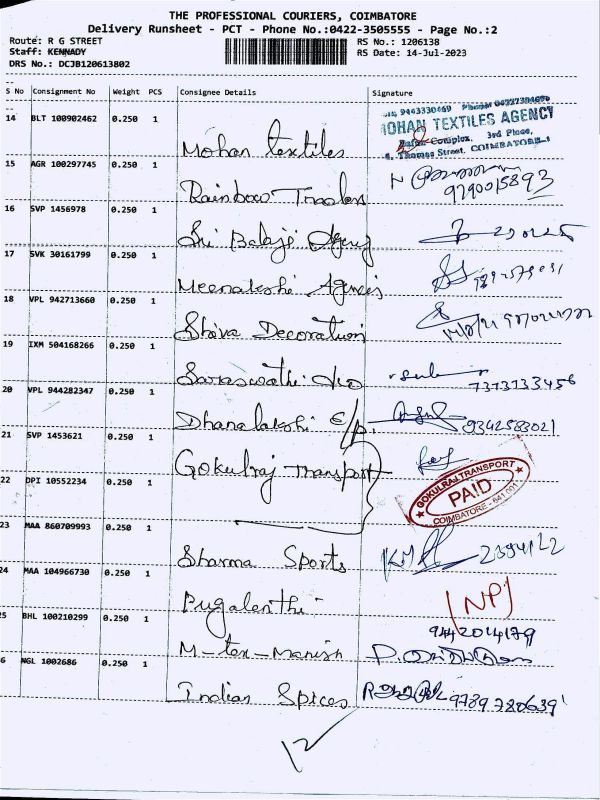 THE PROFESSIONAL COURIERS, COIMBATORE
Delivery Runsheet - PCT - Phone No.:0422-3505555 - Page No.:2
Route: R G STREET RS No.: 1206138
Staff: KENNADY RS Date: 14-Jul-2023
DRS No.: DCJB120613802
S No Consignment No Weight PCS Consignee Details Signature
14 BLT 100902462 0.250 1 Mohan textiles
MOHAN TEXTILES AGENCY
Complex, 3rd Floor,
Thomas Street, COIMBATORE-1
15 AGR 100297745 0.250 1 Rainbow Traders
9790015893
16 SVP 1456978 0.250 1 Sri Balaji Agency
17 SVK 30161799 0.250 1 Meenakshi Agencies
18 VPL 942713660 0.250 1 Shiva Decoration
19 IXM 504168266 0.250 1 Saraswathi
7373733456
20 VPL 944282347 0.250 1 Dhanalakshi E/p.
9342583021
21 SVP 1453621 0.250 1 Gokulraj Transport
22 DPI 10552234 0.250 1
GOKULRAJ TRANSPORT
PAID
COIMBATORE - 641 001
23 MAA 860709993 0.250 1 Sharma Sports
24 MAA 104966730 0.250 1 Pugalenthi
(NP)
25 BHL 100210299 0.250 1 M-tex-Manish
9442014179
26 NGL 1002686 0.250 1 Indian Spices
9789780639
12